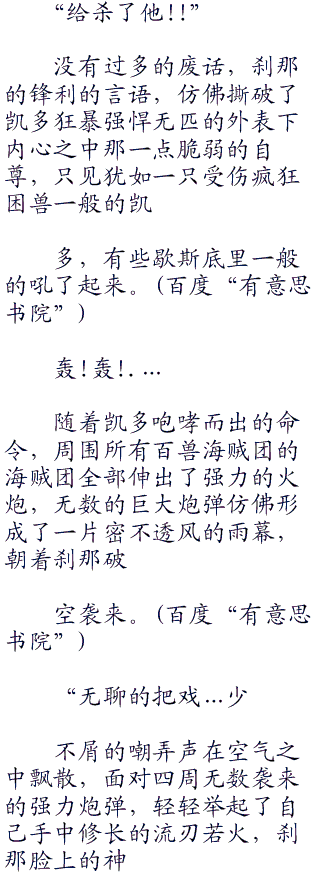 “给杀了他!!”
没有过多的废话，刹那
的锋利的言语，仿佛撕破了
凯多狂暴强悍无匹的外表下
内心之中那一点脆弱的自
尊，只见犹如一只受伤疯狂
困兽一般的凯
多，有些歇斯底里一般
的吼了起来。(百度“有意思
书院”)
轰!轰!. ...
随着凯多咆哮而出的命
令，周围所有百兽海贼团的
海贼团全部伸出了强力的火
炮，无数的巨大炮弹仿佛形
成了一片密不透风的雨幕，
朝着刹那破
空袭来。(百度“有意思
书院”)
“无聊的把戏...少
不屑的嘲弄声在空气之
中飘散，面对四周无数袭来
的强力炮弹，轻轻举起了自
己手中修长的流刃若火，刹
那脸上的神